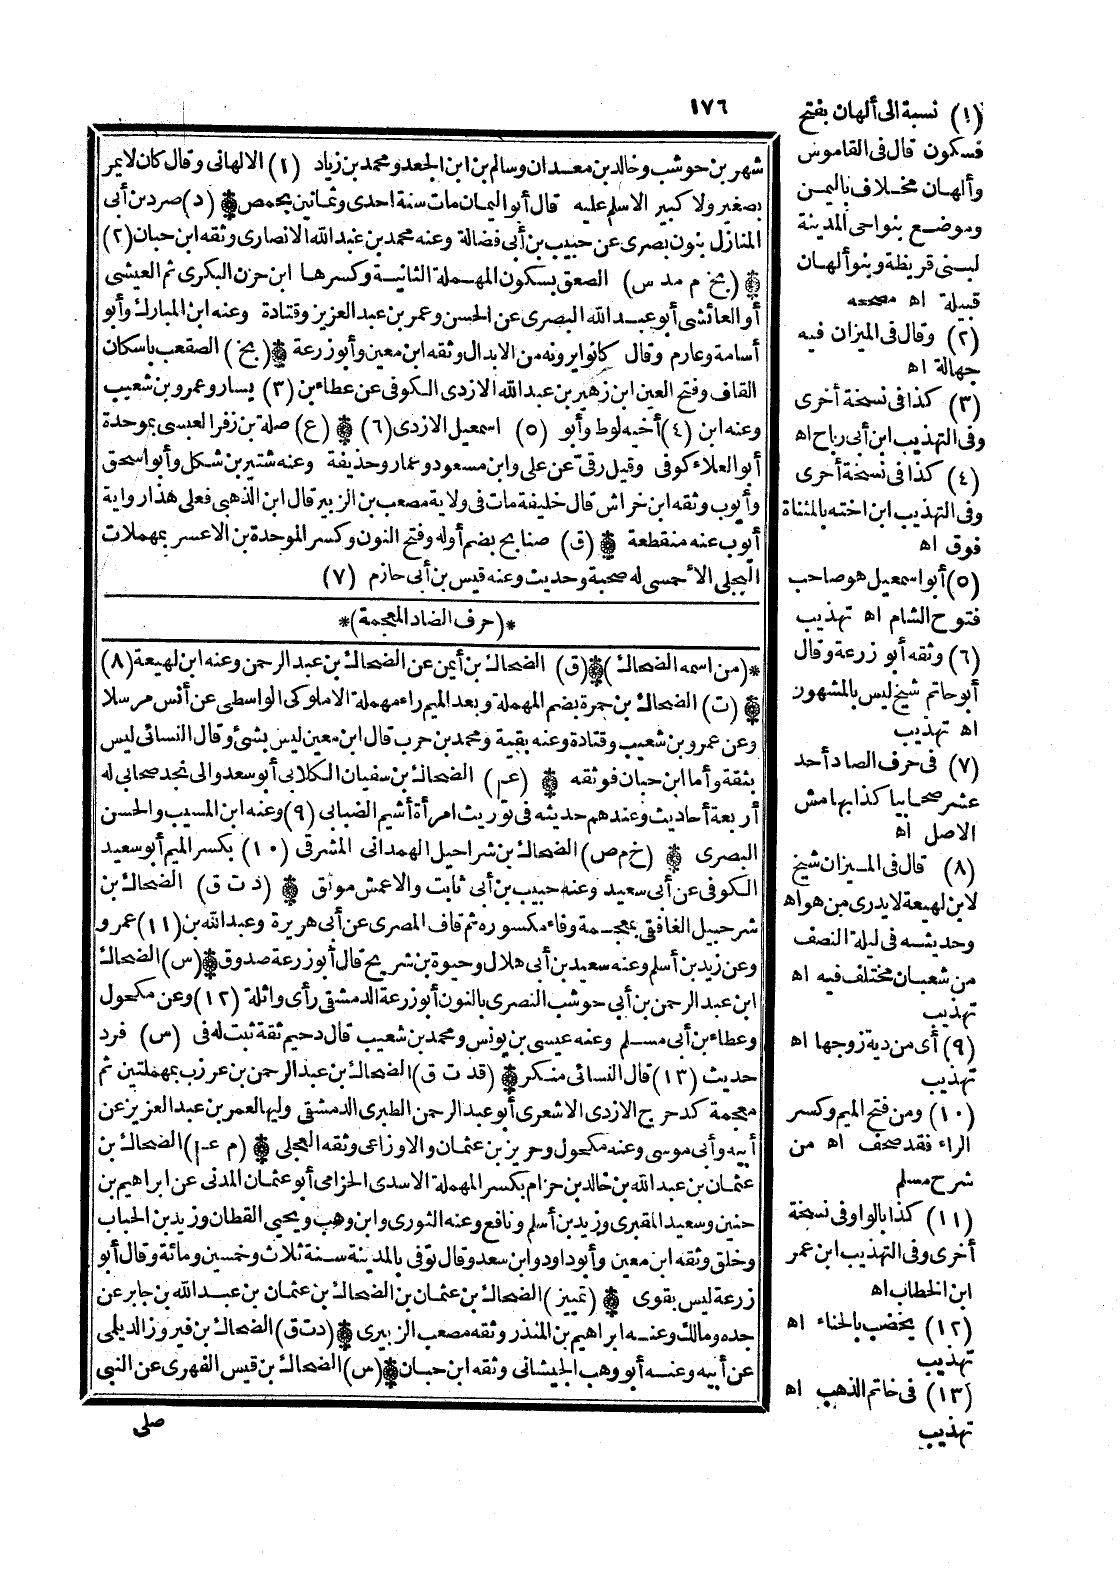 ١٧٦
شهر بن حوشب وخالد بن معدان وسالم بن ابن الجعد ومحمد بن زياد (١) الالهانى وقال كان لا يمر
بصغير ولا كبير الا سلم عليه قال أبو اليمان مات سنة احدى وثمانين بحمص ۞ (د) صرد بن أبى
المنازل بنون بصرى عن حبيب بن أبى فضالة وعنه محمد بن عبد الله الانصارى وثقه ابن حبان (٢)
۞ (بخ م مد س) الصعق بسكون المهملة الثانية وكسرها ابن حزن البكرى ثم العيشى
أو العائشى أبو عبد الله البصرى عن الحسن وعمر بن عبد العزيز وقتادة وعنه ابن المبارك وأبو
أسامة وعارم وقال كانوا يرونه من الابدال وثقه ابن معين وأبو زرعة ۞ (بخ) الصقعب باسكان
القاف وفتح العين ابن زهير بن عبد الله الازدى الكوفى عن عطاء بن (٣) يسار وعمرو بن شعيب
وعنه ابن (٤) أخيه لوط وأبو (٥) اسمعيل الازدى (٦) ۞ (ع) صلة بن زفر العبسى بموحدة
أبو العلاء كوفى وقيل رقىّ عن على وابن مسعود وعمار وحذيفة وعنه شتير بن شكل وأبو اسحق
وأيوب وثقه ابن خراش قال خليفة مات فى ولاية مصعب بن الزبير قال ابن الذهبى فعلى هذا رواية
أيوب عنه منقطعة ۞ (ق) صنابح بضم أوله وفتح النون وكسر الموحدة بن الاعسر بمهملات
البجلى الأحمسى له صحبة وحديث وعنه قيس بن أبى حازم (٧)
*(حرف الضاد المعجمة)*
*(من اسمه الضحاك)۞(ق) الضحاك بن أيمن عن الضحاك بن عبد الرحمن وعنه ابن لهيعة (٨)
۞ (ت) الضحاك بن حمرة بضم المهملة وبعد الميم راء مهملة الاملوكى الواسطى عن أنس مرسلا
وعن عمرو بن شعيب وقتادة وعنه بقية ومحمد بن حرب قال ابن معين ليس بشئ وقال النسائى ليس
بثقة وأما ابن حبان فوثقه ۞ (عـم) الضحاك بن سفيان الكلابى أبو سعد والى نجد صحابى له
أربعة أحاديث وعندهم حديثه فى توريث امرأة أشيم الضبابى (٩) وعنه ابن المسيب والحسن
البصرى ۞ (خ م ص) الضحاك بن شراحيل الهمدانى المشرقى (١٠) بكسر الميم أبو سعيد
الكوفى عن أبى سعيد وعنه حبيب بن أبى ثابت والاعمش موثق ۞ (د ت ق) الضحاك بن
شرحبيل الغافقى بمعجمة وفاء مكسوره ثم قاف المصرى عن أبى هريرة وعبد الله بن (١١) عمرو
وعن زيد بن أسلم وعنه سعيد بن أبى هلال وحيوة بن شريح قال أبو زرعة صدوق ۞ (س) الضحاك
ابن عبد الرحمن بن أبى حوشب النصرى بالنون أبو زرعة الدمشقى رأى واثلة (١٢) وعن مكحول
وعطاء بن أبى مسلم وعنه عيسى بن يونس ومحمد بن شعيب قال دحيم ثقة ثبت له فى (س) فرد
حديث (١٣) قال النسائى منكر ۞ (قد ت ق) الضحاك بن عبد الرحمن بن عرزب بمهملتين ثم
معجمة كدحرج الازدى الاشعرى أبو عبد الرحمن الطبرى الدمشقى وليها لعمر بن عبد العزيز عن
أبيه وأبى موسى وعنه مكحول وحريز بن عثمان والاوزاعى وثقه العجلى ۞ (م عـم) الضحاك بن
عثمان بن عبد الله بن خالد بن حزام بكسر المهملة الاسدى الحزامى أبو عثمان المدنى عن ابراهيم بن
حنين وسعيد المقبرى وزيد بن أسلم ونافع وعنه الثورى وابن وهب ويحيى القطان وزيد بن الحباب
وخلق وثقه ابن معين وأبو داود وابن سعد وقال توفى بالمدينة سنة ثلاث وخمسين ومائة وقال أبو
زرعة ليس بقوى ۞ (تمييز) الضحاك بن عثمان بن الضحاك بن عثمان بن عبد الله بن جابر عن
جده ومالك وعنه ابراهيم بن المنذر وثقه مصعب الزبيرى ۞ (د ت ق) الضحاك بن فيروز الديلى
عن أبيه وعنه أبو وهب الجيشانى وثقه ابن حبان ۞ (س) الضحاك بن قيس الفهرى عن النبى
صلى
(١) نسبة الى ألهان بفتح
فسكون قال فى القاموس
وألهان مخلاف باليمن
وموضع بنواحى المدينة
لبنى قريظة وبنو ألهان
قبيلة اه مصححه
(٢) وقال فى الميزان فيه
جهالة اه
(٣) كذا فى نسخة أخرى
وفى التهذيب ابن أبى رباح اه
(٤) كذا فى نسخة أخرى
وفى التهذيب ابن اخته بالمثناة
فوق اه
(٥) أبو اسمعيل هو صاحب
فتوح الشام اه تهذيب
(٦) وثقه أبو زرعة وقال
أبو حاتم شيخ ليس بالمشهور
اه تهذيب
(٧) فى حرف الصاد أحد
عشر صحابيا كذا بهامش
الاصل اه
(٨) قال فى الميزان شيخ
لابن لهيعة لا يدرى من هو اه
وحديثه فى ليلة النصف
من شعبان مختلف فيه اه
تهذيب
(٩) أى من دية زوجها اه
تهذيب
(١٠) ومن فتح الميم وكسر
الراء فقد صحف اه من
شرح مسلم
(١١) كذا بالواو فى نسخة
أخرى وفى التهذيب ابن عمر
ابن الخطاب اه
(١٢) يخضب بالحناء اه
تهذيب
(١٣) فى خاتم الذهب اه
تهذيب